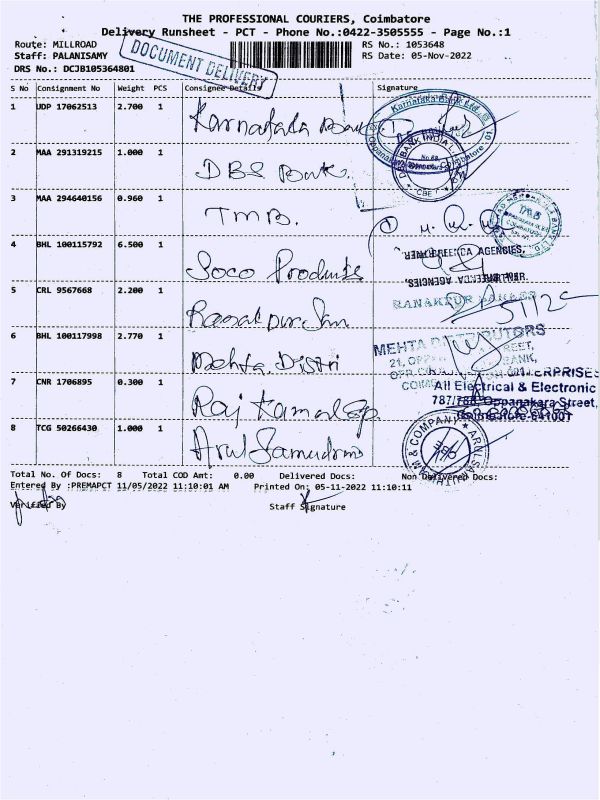 THE PROFESSIONAL COURIERS, Coimbatore
Delivery Runsheet - PCT - Phone No.:0422-3505555 - Page No.:1
Route: MILLROAD
RS No.: 1053648
Staff: PALANISAMY
RS Date: 05-Nov-2022
DRS No.: DCJB105364801
DOCUMENT DELIVERY
S No Consignment No Weight PCS Consignee Details Signature
1 UDP 17062513 2.700 1 Karnataka Bank
Karnataka Bank Ltd.
2 MAA 291319215 1.000 1 DBS Bank.
BANK INDIA L
CBE
3 MAA 294640156 0.960 1 TMB.
4 BHL 100115792 6.500 1 Soco Products
AGENCIES,
5 CRL 9567668 2.200 1
5/11/22
6 BHL 100117998 2.770 1 Mehta Distri
MEHTA DISTRIBUTORS
7 CNR 1706895 0.300 1 Raj Kamal Ep
All Electrical & Electronic
787/788, Oppanakara Street,
Coimbatore-641001
8 TCG 50266430 1.000 1
& COMPANY
Total No. Of Docs: 8 Total COD Amt: 0.00 Delivered Docs: Non Delivered Docs:
Entered By :PREMAPCT 11/05/2022 11:10:01 AM Printed On: 05-11-2022 11:10:11
Verified By
Staff Signature